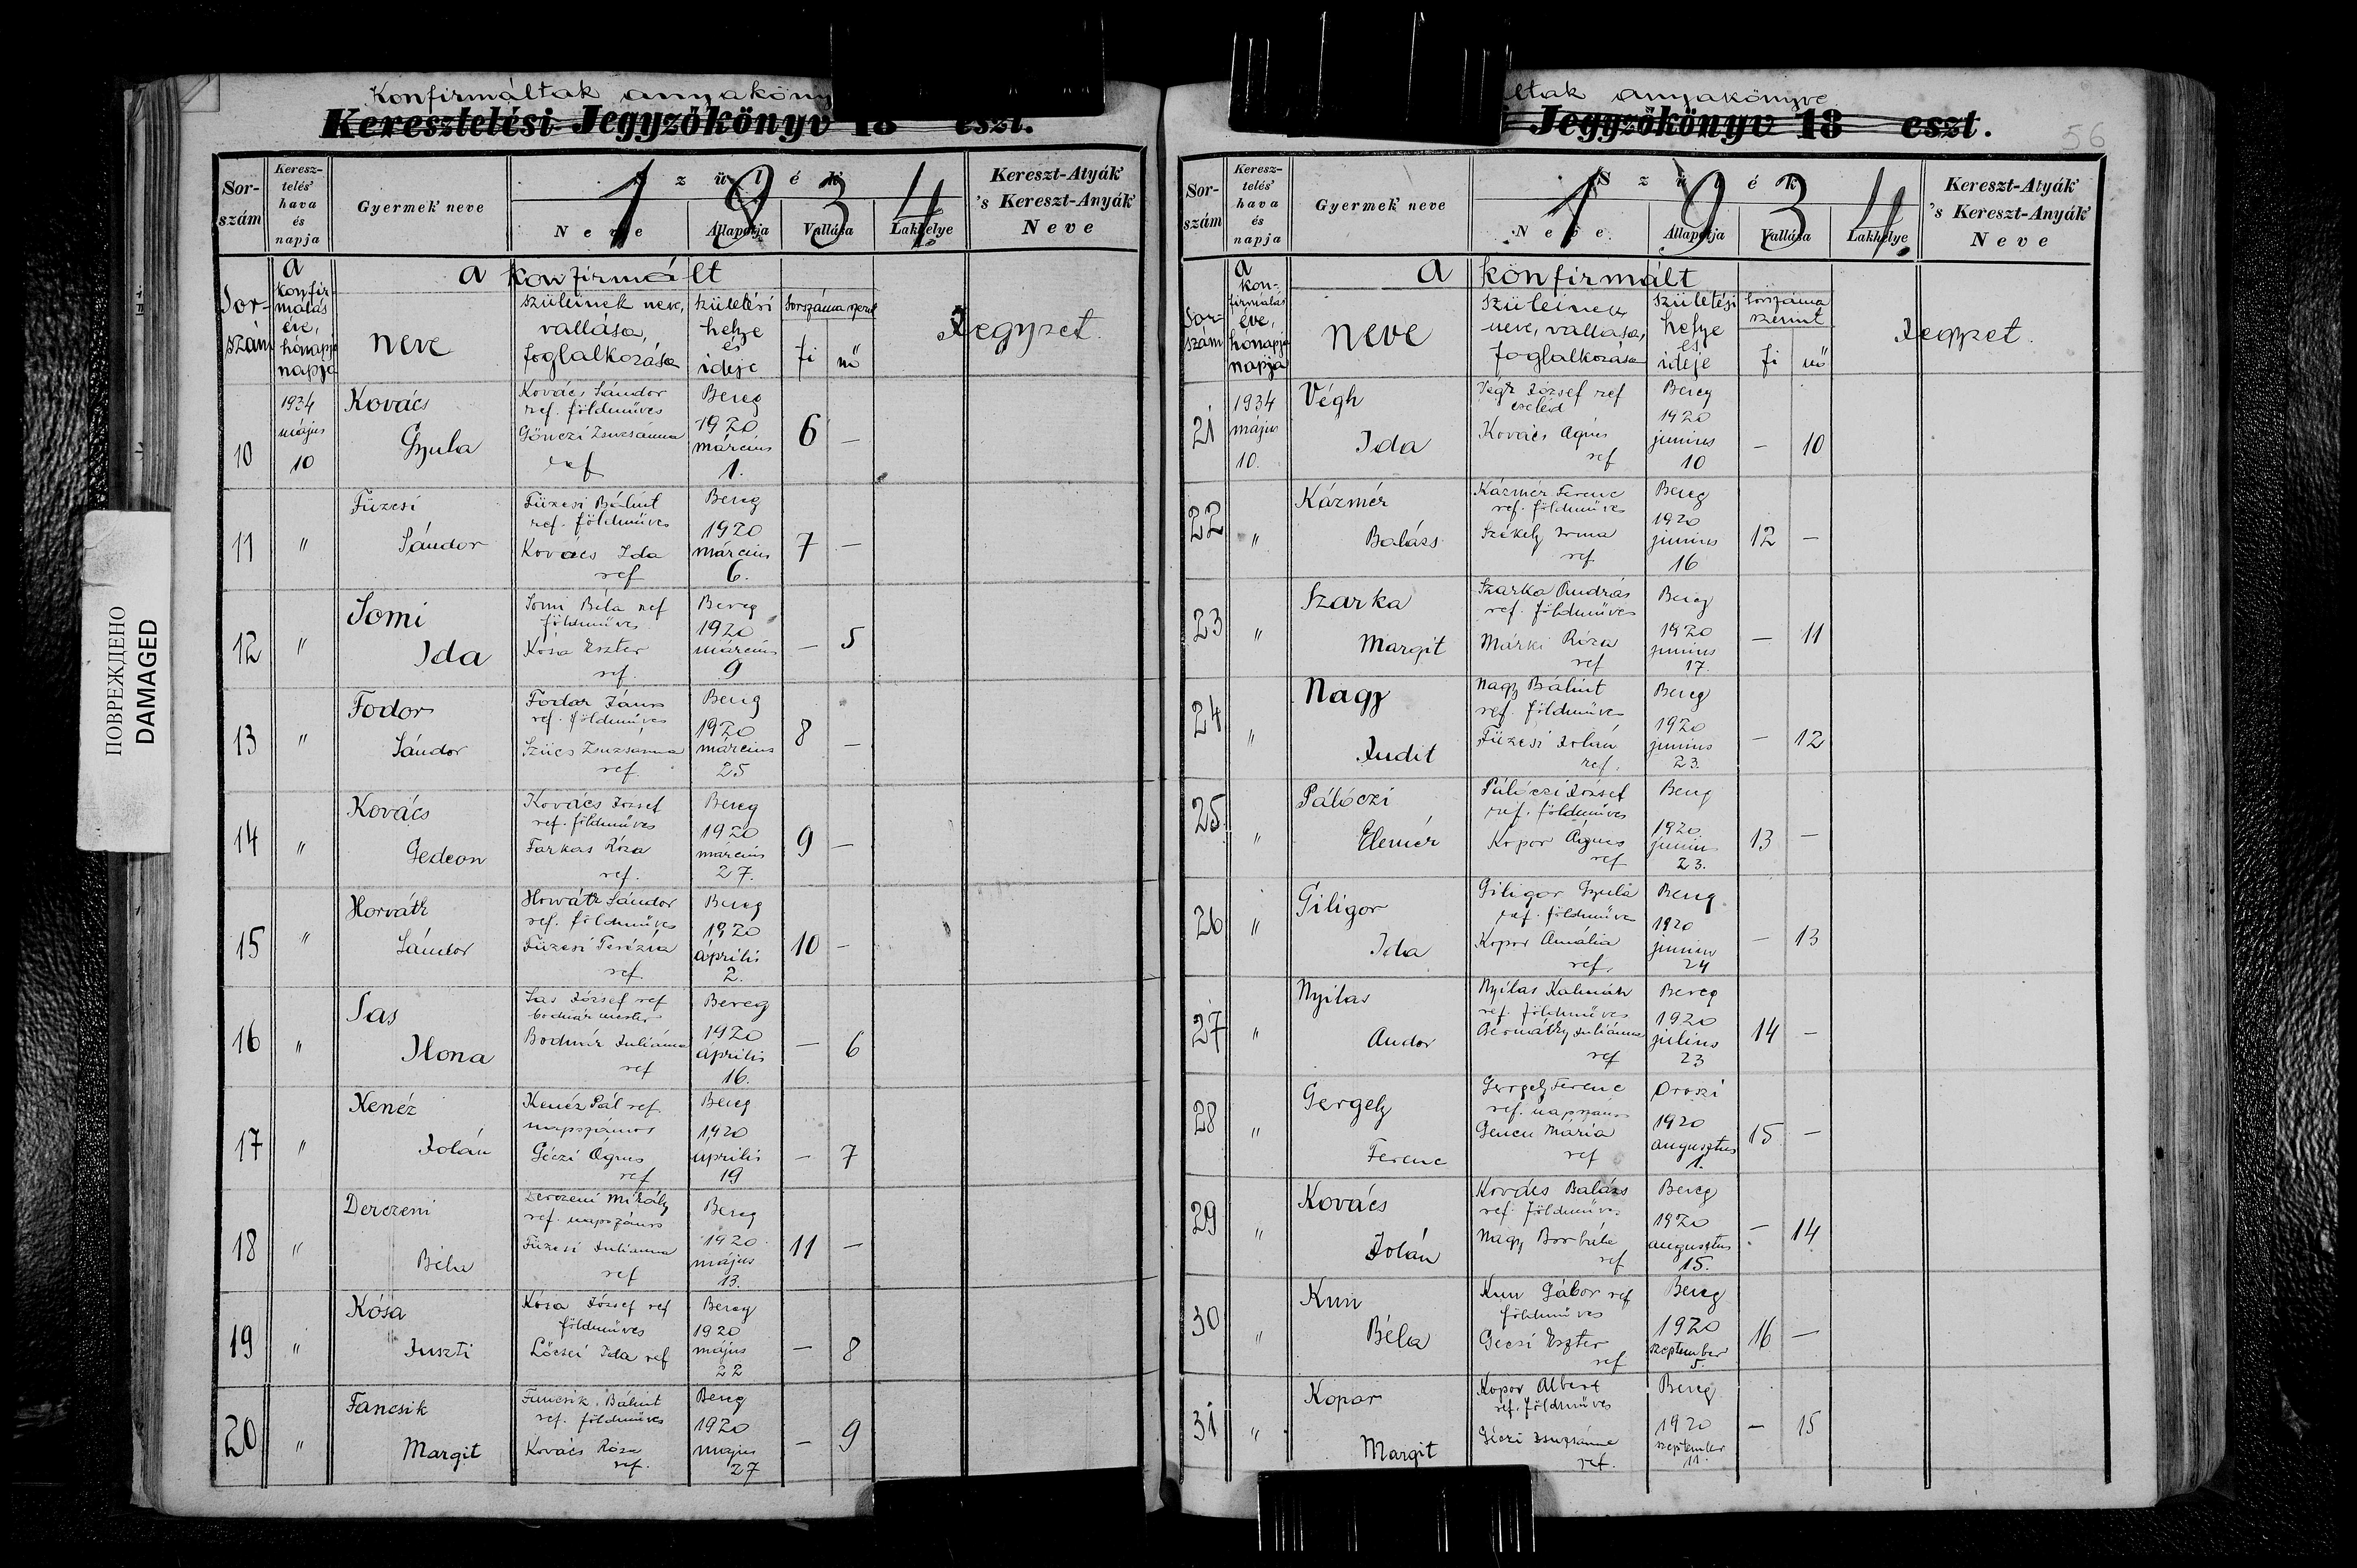 Konfirmáltak anyaköny
Keresztelési Jegyzőkönyv 18 eszt.
Sor-
szám
Keresz-
telés'
hava
és
napja
Gyermek' neve
Szülék
1934.
Neve
Állapotja
Vallása
Lakhelye
Kereszt-Atyák'
's Kereszt-Anyák'
Neve
a konfirmált
Sor-
szám
a
konfir-
málás
éve,
hónapja
napja
neve
szüleinek neve,
vallása,
foglalkozása
születési
helye
és
ideje
Sorszáma szerint
fi
nő
Jegyzet.
10
1934
május
10
Kovács
Gyula
Kovács Sándor
ref. földműves
Gönczi Zsuzsánna
ref
Bereg
1920
március
1.
6
–
11
"
Füzesi
Sándor
Füzesi Bálint
ref. földműves
Kovács Ida
ref
Bereg
1920
március
6.
7
–
12
"
Somi
Ida
Somi Béla ref
földműves
Kósa Eszter
ref.
Bereg
1920
március
9
–
5
13
"
Fodor
Sándor
Fodor János
ref. földműves
Szűcs Zsuzsánna
ref.
Bereg
1920
március
25
8
–
14
"
Kovács
Gedeon
Kovács József
ref. földműves
Farkas Róza
ref.
Bereg
1920
március
27.
9
–
15
"
Horváth
Sándor
Horváth Sándor
ref. földműves
Füzesi Terézia
ref.
Bereg
1920
április
2.
10
–
16
"
Sas
Ilona
Sas József ref
bodnár mester
Bodnár Juliánna
ref
Bereg
1920
április
16.
–
6
17
"
Kenéz
Jolán
Kenéz Pál ref
napszámos
Géczi Ágnes
ref
Bereg
1920
április
19
–
7
18
"
Derczeni
Béla
Derczeni Mihály
ref. napszámos
Füzesi Julianna
ref
Bereg
1920
május
13.
11
–
19
"
Kósa
Juszti
Kósa József ref
földműves
Lőcsei Ida ref
Bereg
1920
május
22
–
8
20
"
Fancsik
Margit
Fancsik Bálint
ref. földműves
Kovács Róza
ref.
Bereg
1920
május
27
–
9
ltak anyakönyve
Jegyzőkönyv 18 eszt.
56
Sor-
szám
Keresz-
telés'
hava
és
napja
Gyermek' neve
Szülék
1934.
Neve
Állapotja
Vallása
Lakhelye
Kereszt-Atyák'
's Kereszt-Anyák'
Neve
a konfirmált
Sor-
szám
a
kon-
firmálás
éve,
hónapja
napja
neve
szüleinek
neve, vallása,
foglalkozása
születési
helye
és
ideje
sorszáma
szerint
fi
nő
Jegyzet.
21
1934
május
10.
Végh
Ida
Végh József ref
cseléd
Kovács Ágnes
ref
Bereg
1920
junius
10
–
10
22
"
Kázmér
Balázs
Kázmér Ferenc
ref. földműves
Székely Irma
ref
Bereg
1920
junius
16
12
–
23
"
Szarka
Margit
Szarka András
ref. földműves
Márki Róza
ref
Bereg
1920
junius
17.
–
11
24
"
Nagy
Judit
Nagy Bálint
ref. földműves
Füzesi Jolán
ref.
Bereg
1920
junius
23.
–
12
25
"
Pálóczi
Elemér
Pálóczi József
ref. földműves
Kopor Ágnes
ref
Bereg
1920
junius
23.
13
–
26
"
Giligor
Ida
Giligor Gyula
ref. földműves
Kopor Amália
ref.
Bereg
1920
junius
24
–
13
27
"
Nyilas
Andor
Nyilas Kálmán
ref. földműves
Juliánna
ref
Bereg
1920
julius
23
14
–
28
"
Gergely
Ferenc
Gergely Ferenc
ref. napszámos
Mária
ref
Oroszi
1920
augusztus
1.
15
–
29
"
Kovács
Jolán
Kovács Balázs
ref. földműves
Nagy Borbála
ref
Bereg
1920
augusztus
15.
–
14
30
"
Kun
Béla
Kun Gábor ref
földműves
Gecsi Eszter
ref
Bereg
1920
szeptember
5.
16
–
31
"
Kopor
Margit
Kopor Albert
ref. földműves
Géczi Zsuzsánna
ref.
Bereg
1920
szeptember
11.
–
15
ПОВРЕЖДЕНО
DAMAGED